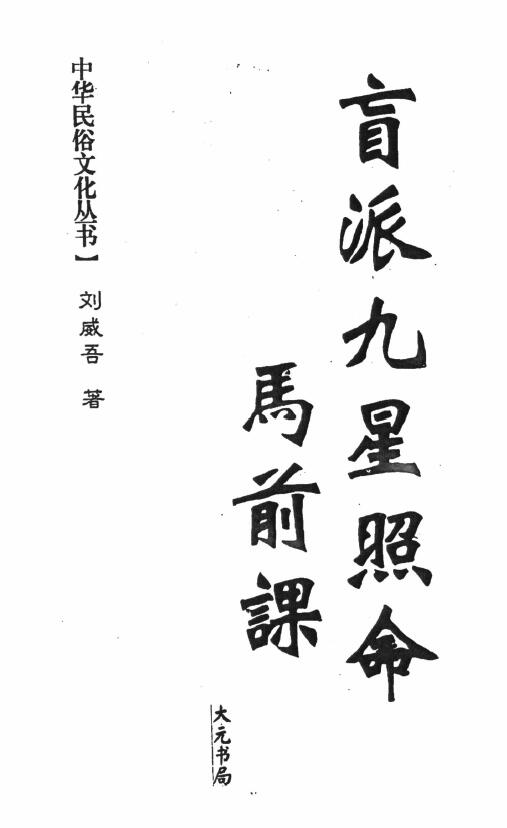 盲派九星照命
馬前課
大元书局
中华民俗文化丛书】
刘威吾 著